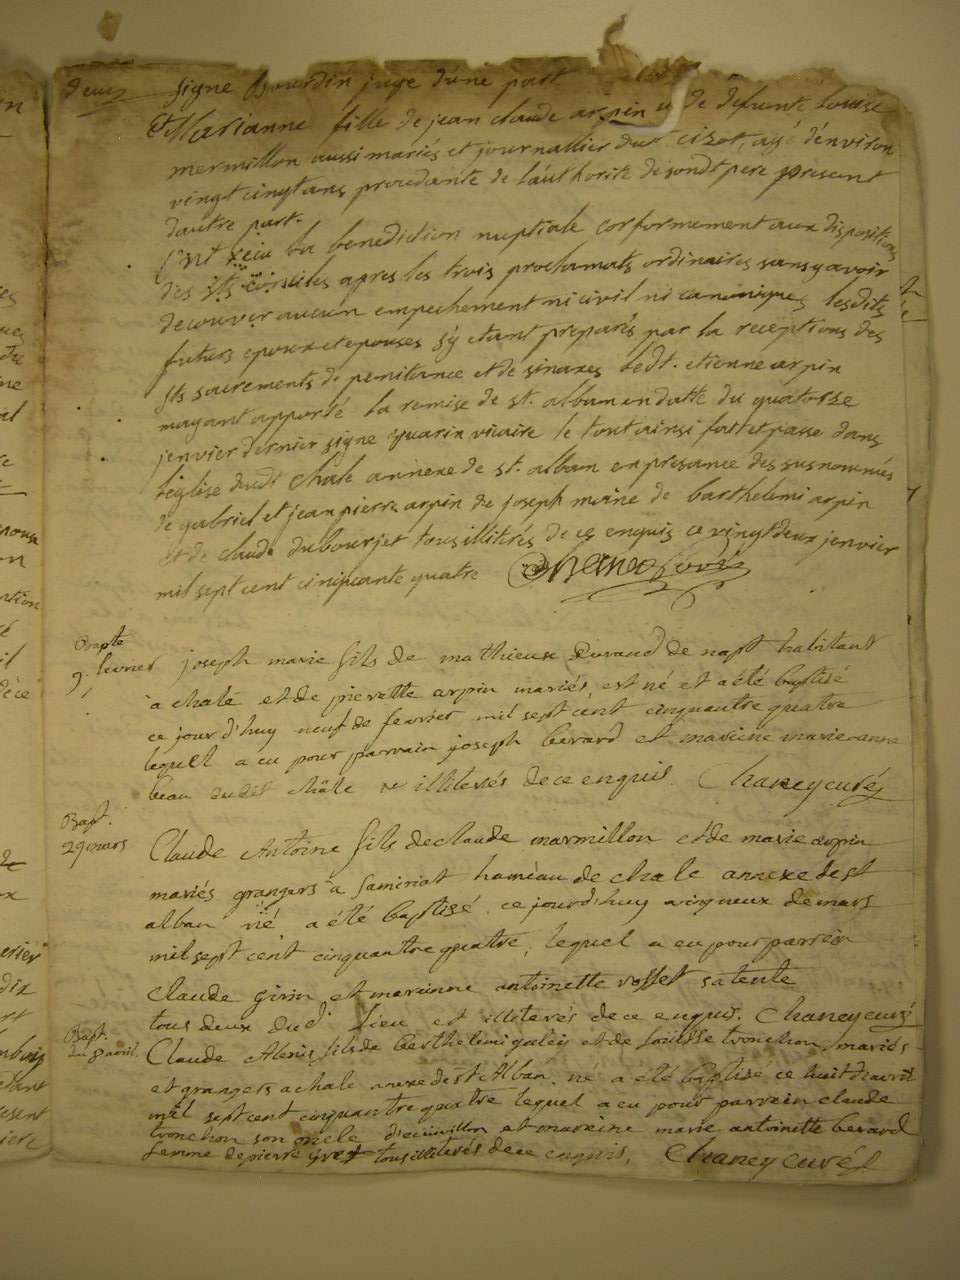 deux signe Bourdin juge d'une part
& Marianne fille de jean claude arpin et de defunte Louise
mermillon aussi mariés et journallier dud cizot, agé d'environ
vingt cinq ans procedante de l'authorité de sondt pere present
dautre part.
Ont reçu la benediction nuptiale conformement aux dispositions
des sts conciles apres les trois proclamats ordinaires sans y avoir
decouver aucun empechement ni civil ni canonique, lesdits
futurs epoux et epouses s'y etant preparés par la receptions des
sts sacrements de penitance et de sinaxes ledt. etienne arpin
mayant apporté la remise de st. alban en datte du quatorze
jenvier dernier signe quarin vicaire le tout ainsi fait et passe dans
l'église dudt Chale annexe de st. alban en presance des susnommés
de gabriel et jean pierre arpin de joseph moine de barthelemi arpin
et de claude dubourjet tous illiterés de ce enquis ce vingt deux jenvier
mil sept cent cinquante quatre
Bapte
9. fevrier
joseph marie fils de mathieux Durand de napt habitant
à chale et de pierette arpin mariés, est né et a été baptisé
ce jourd'huy neuf de fevrier mil sept cent cinquantre quatre
lequel a eu pour parrain joseph berard et mareine marie anne
beau dudt châle illiterés de ce enquis. Chaney curé
Bapt.
29 mars
Claude Antoine fils de claude marmillon et de marie arpin
mariés grangers à saminiat haméau de chale annexe de st
alban né, a été baptisé ce jourd'huy de mars
mil sept cent cinquantre quatre, lequel a eu pour parrein
claude girin et marinne antoinette rosset sa tente
tous deux dud lieu et illiterés de ce enquis. Chaney curé
Bapt.
du 8 avril.
Claude Alexis fils de berthelemi et de Louisse tronchon mariés
et grangers a chale anexe de st Alban, né a été baptisé ce huit d'avril
mil sept cent cinquantre quatre lequel a eu pour parrein claude
tronchon son oncle et mareine marie antoinette berard
femme de pierre tous illiterés de ce enquis, Chaney curé